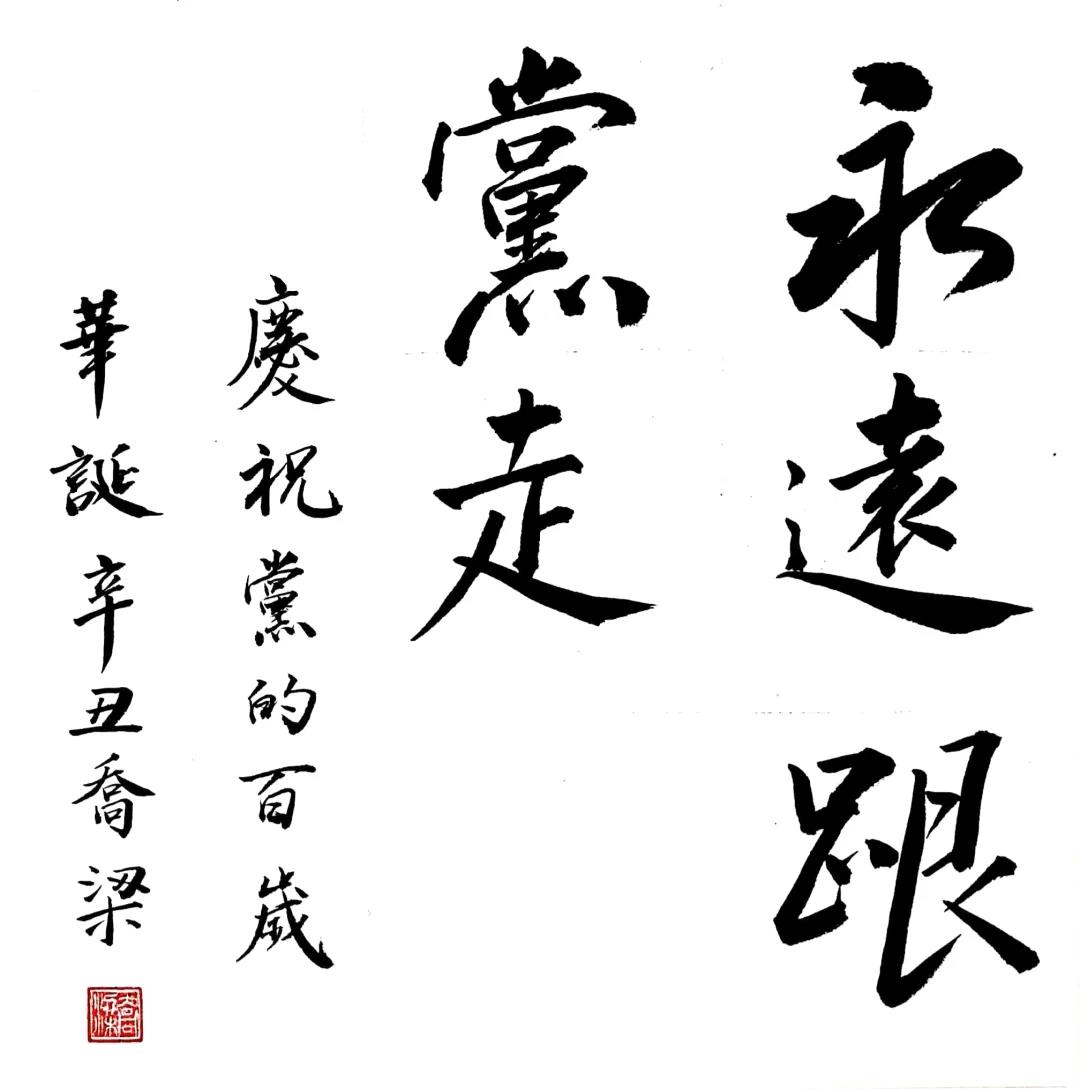 永遠跟
黨走
慶祝黨的百歲
華誕辛丑喬梁
喬梁